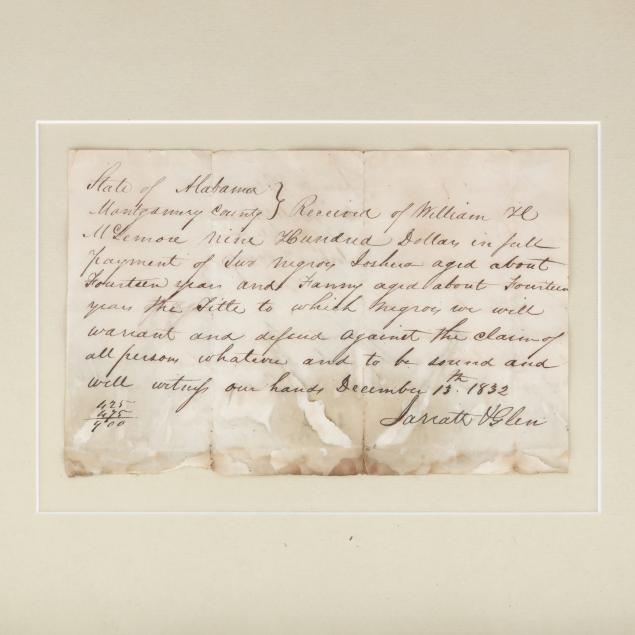 State of Alabama }
Montgomery County } Received of William H
McLemore Nine Hundred Dollars in full
payment of Two negroes Joshua aged about
Fourteen years and Fanny aged about Fourteen
years the Title to which negroes we will
warrant and defend against the claim of
all persons whatever and to be sound and
well witness our hands December 13th. 1832
425
475
900
Jarratt & Glen